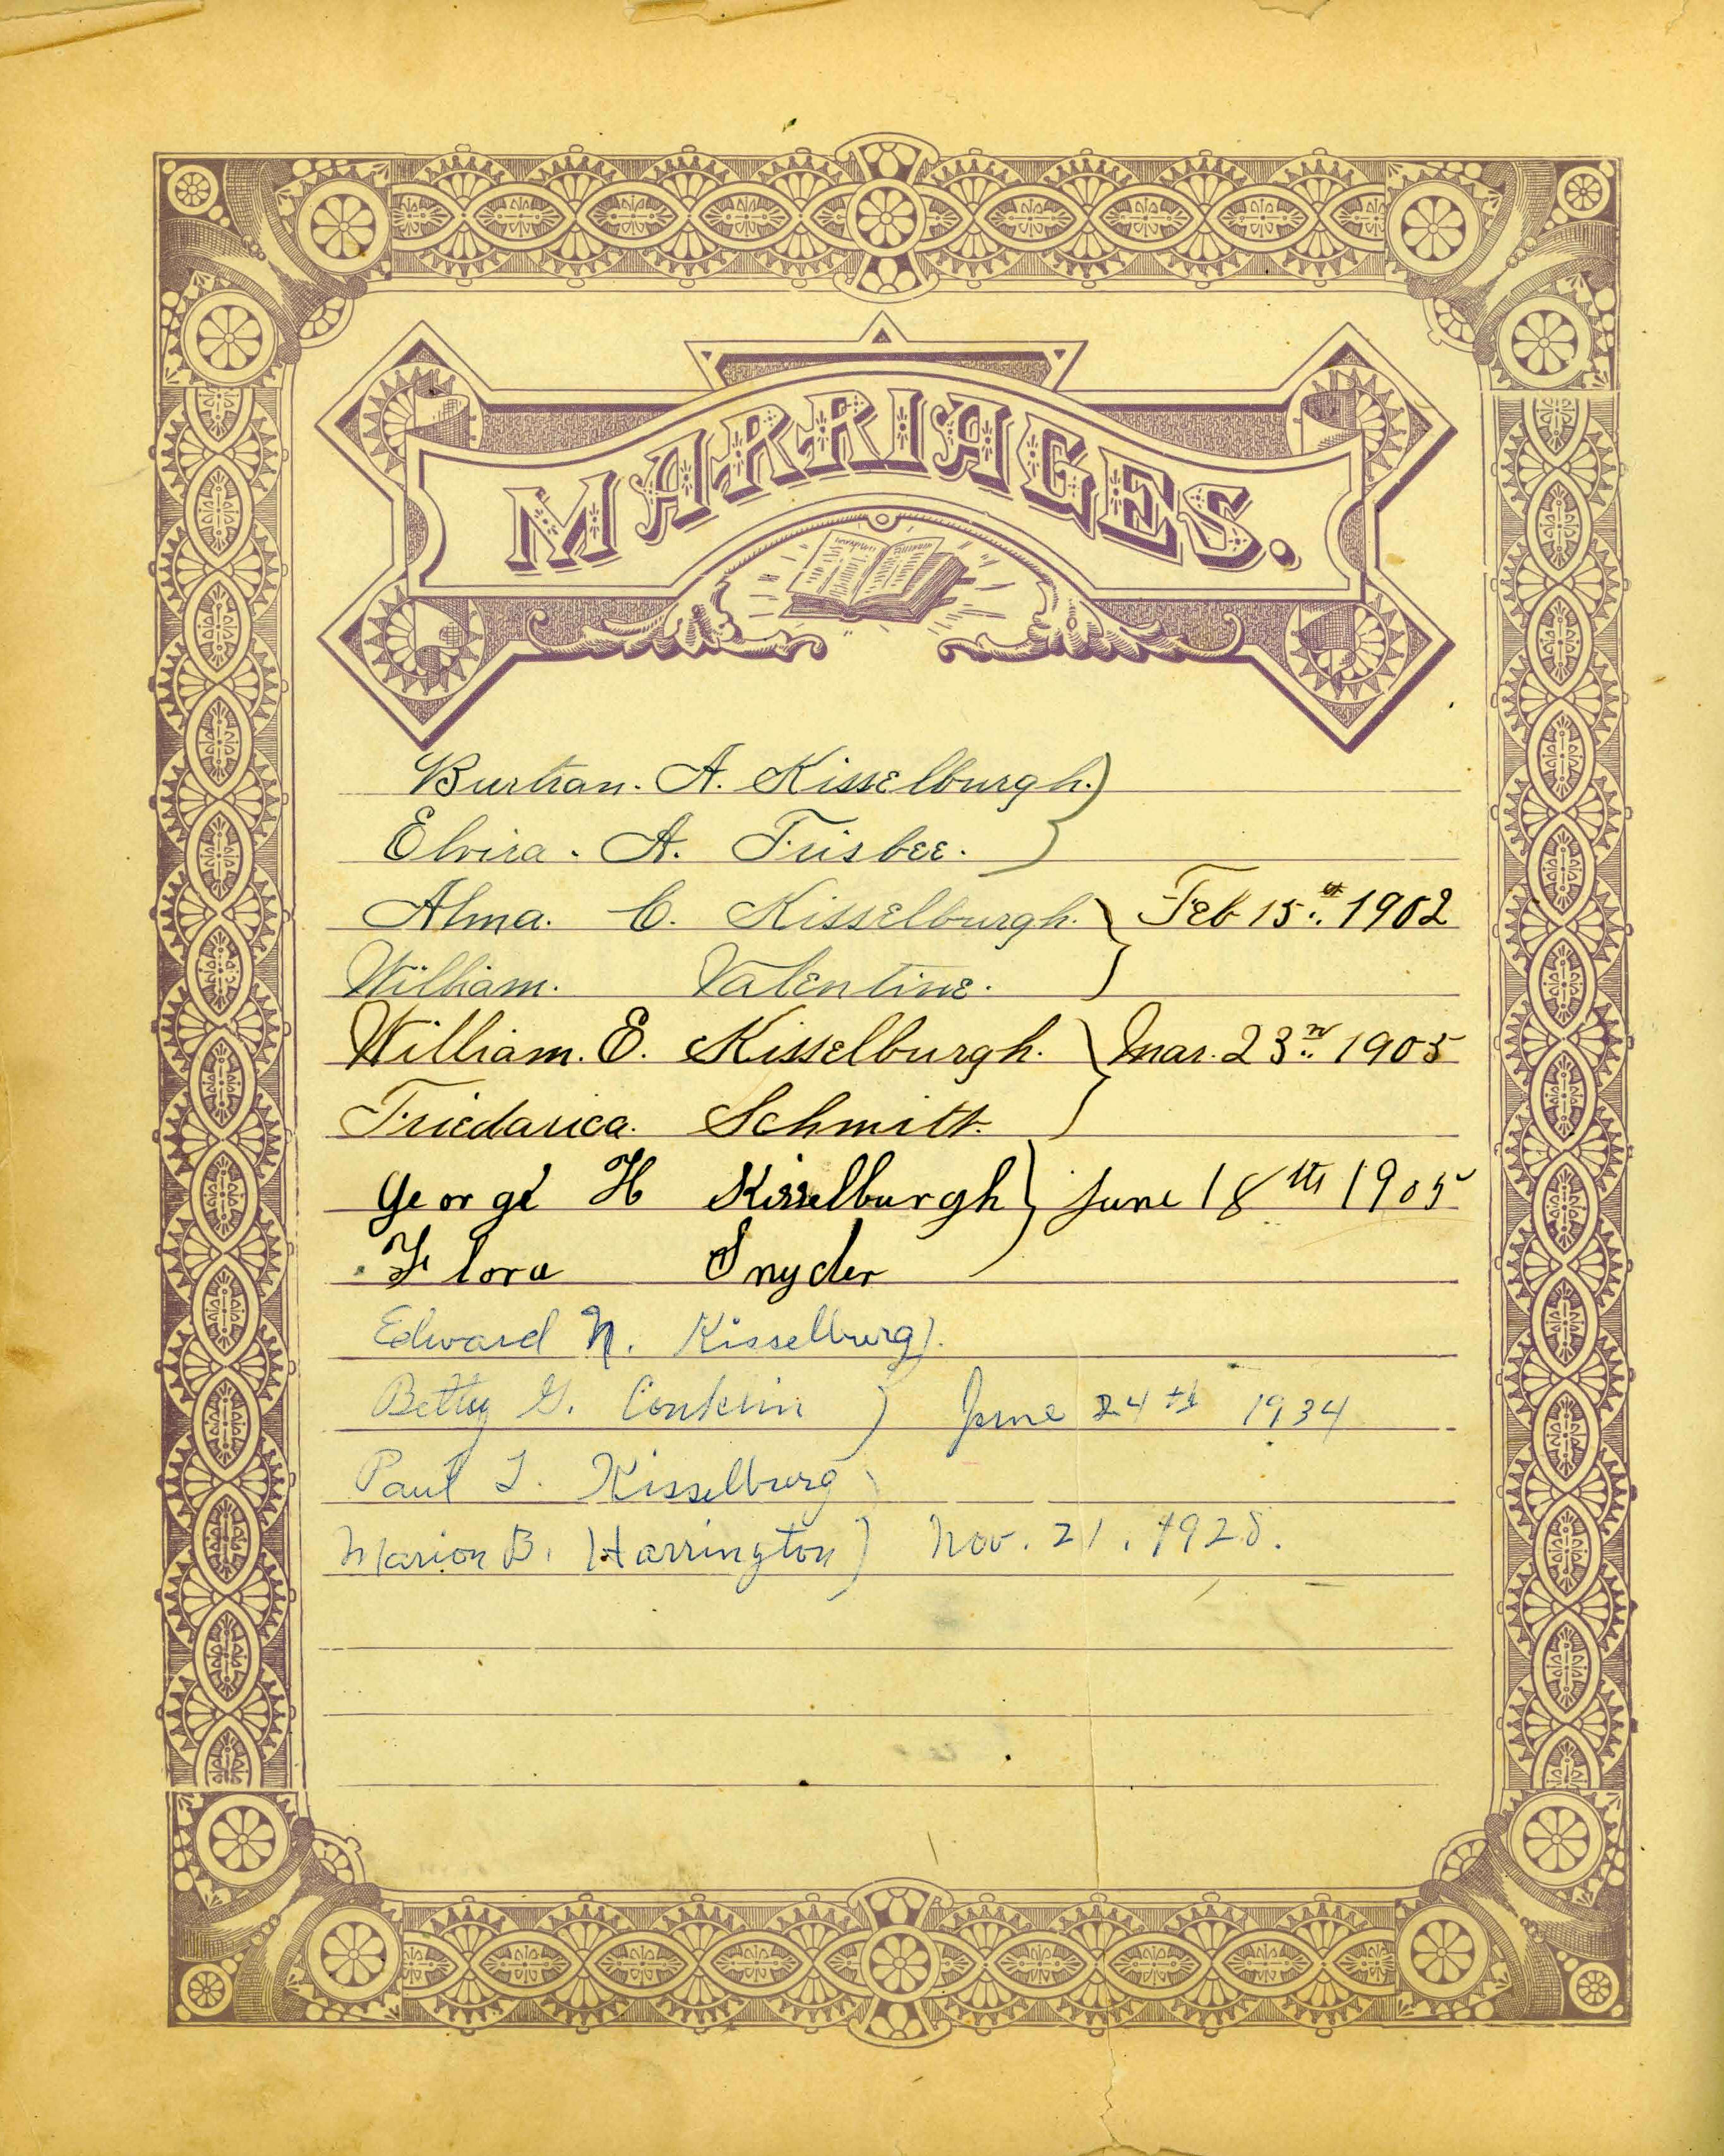 MARRIAGES.
Burtran. A. Kisselburgh.)
Elvira. A. Frisbee. }
Alma. C. Kisselburgh. } Feb 15.th 1902
William. Valentine.
William. E. Kisselburgh. } Mar. 23.rd 1905
Friedarica. Schmitt.
George H Kisselburgh } June 18th 1905
Flora Snyder
Edward N. Kisselburg).
Betty G. Conklin ) June 24th 1934
Paul L. Kisselburg
Marion B. Harrington ) Nov. 21. 1928.